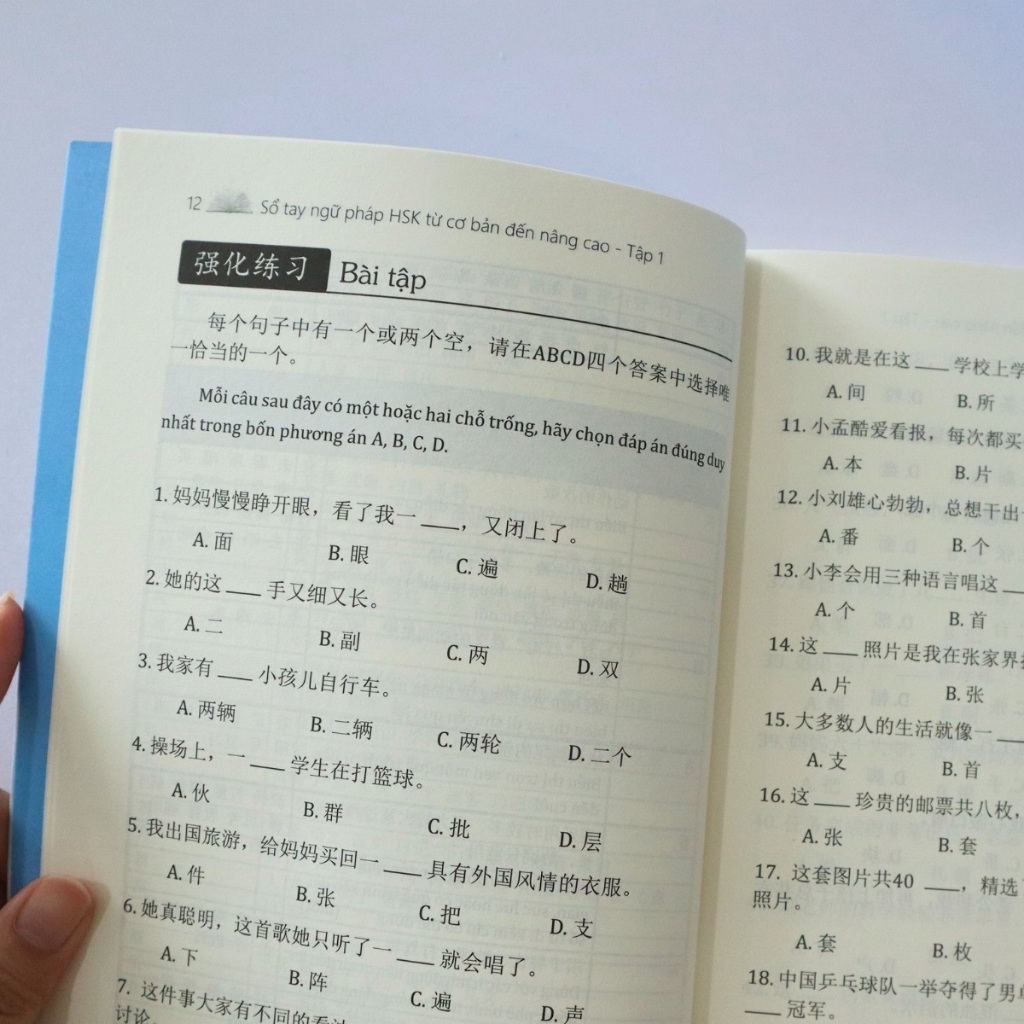 12 Sổ tay ngữ pháp HSK từ cơ bản đến nâng cao - Tập 1
强化练习 Bài tập
每个句子中有一个或两个空，请在ABCD四个答案中选择唯
一恰当的一个。
Mỗi câu sau đây có một hoặc hai chỗ trống, hãy chọn đáp án đúng duy
nhất trong bốn phương án A, B, C, D.
1. 妈妈慢慢睁开眼，看了我一 ____，又闭上了。
A. 面 B. 眼 C. 遍 D. 趟
2. 她的这 ____ 手又细又长。
A. 二 B. 副 C. 两 D. 双
3. 我家有 ____ 小孩儿自行车。
A. 两辆 B. 二辆 C. 两轮 D. 二个
4. 操场上，一 ____ 学生在打篮球。
A. 伙 B. 群 C. 批 D. 层
5. 我出国旅游，给妈妈买回一 ____ 具有外国风情的衣服。
A. 件 B. 张 C. 把 D. 支
6. 她真聪明，这首歌她只听了一 ____ 就会唱了。
A. 下 B. 阵 C. 遍 D. 声
7. 这件事大家有不同的看法
讨论。
10. 我就是在这 ____ 学校上学
A. 间 B. 所
11. 小孟酷爱看报，每次都买
A. 本 B. 片
12. 小刘雄心勃勃，总想干出
A. 番 B. 个
13. 小李会用三种语言唱这 ____
A. 个 B. 首
14. 这 ____ 照片是我在张家界
A. 片 B. 张
15. 大多数人的生活就像一 ____
A. 支 B. 首
16. 这 ____ 珍贵的邮票共八枚，
A. 张 B. 套
17. 这套图片共40 ____，精选
照片。
A. 套 B. 枚
18. 中国乒乓球队一举夺得了男
____ 冠军。